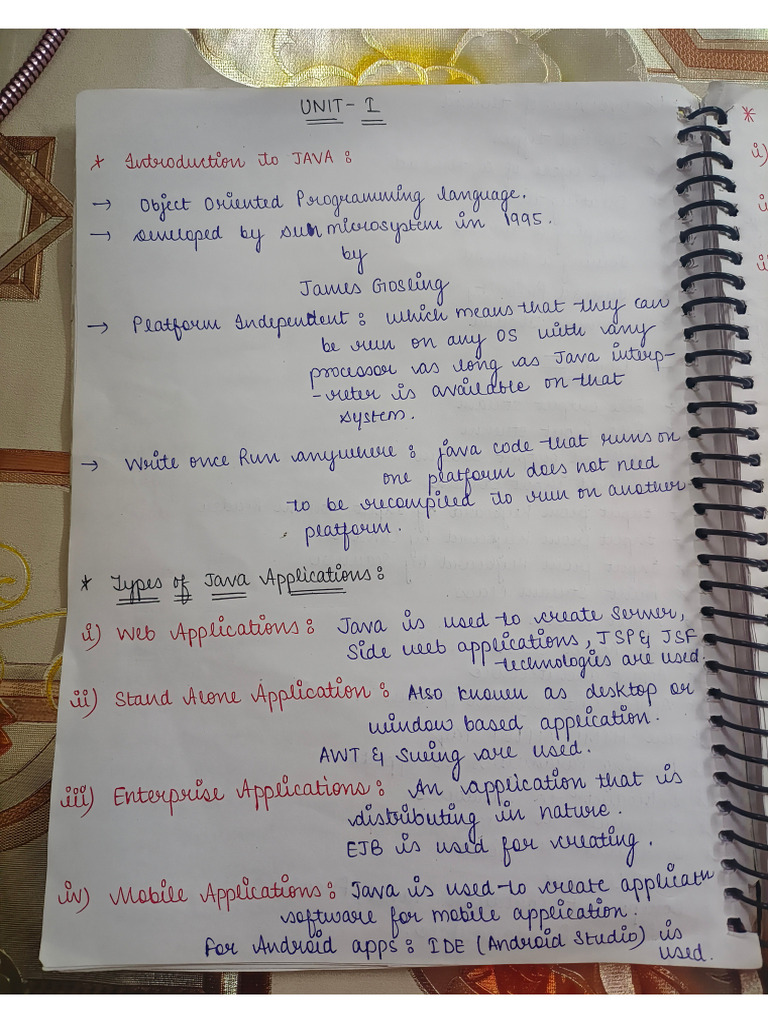 UNIT- I
* Introduction to JAVA :
→ Object Oriented Programming language.
→ Developed by sun microsystem in 1995.
by
James Gosling
→ Platform Independent : which means that they can
be run on any OS with any
processor as long as Java interp-
-reter is available on that
system.
→ Write once Run anywhere : java code that runs on
one platform does not need
to be recompiled to run on another
platform.
* Types of Java Applications :
i) Web Applications : Java is used to create server,
side web applications, JSP & JSF
technologies are used.
ii) Stand Alone Application : Also known as desktop or
window based application.
AWT & Swing are used.
iii) Enterprise Applications : An application that is
distributing in nature.
EJB is used for creating.
iv) Mobile Applications : Java is used to create applicatn
software for mobile application.
For Android apps : IDE (Android Studio) is
used.
*
i)
ii